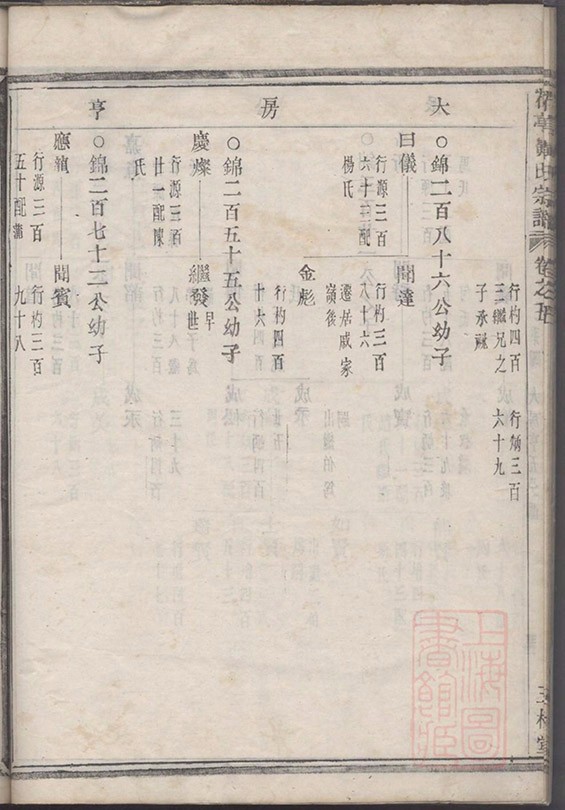 宗譜 卷之五
大 房 亨
行杓四百
三繼兄之
子承祧
行炳三百
六十九
○錦二百八十六公幼子
曰儀
行源三百
六十三配
楊氏
聞達
行杓三百
八十六
遷居戚家
嶺後
金彪
行杓四百
十六
○錦二百五十五公幼子
慶燦
行源三百
廿一配陳
氏
繼發
早
世
○錦二百七十三公幼子
應
行源三百
五十配
聞賓
行杓三百
九十八
上海圖
書館藏